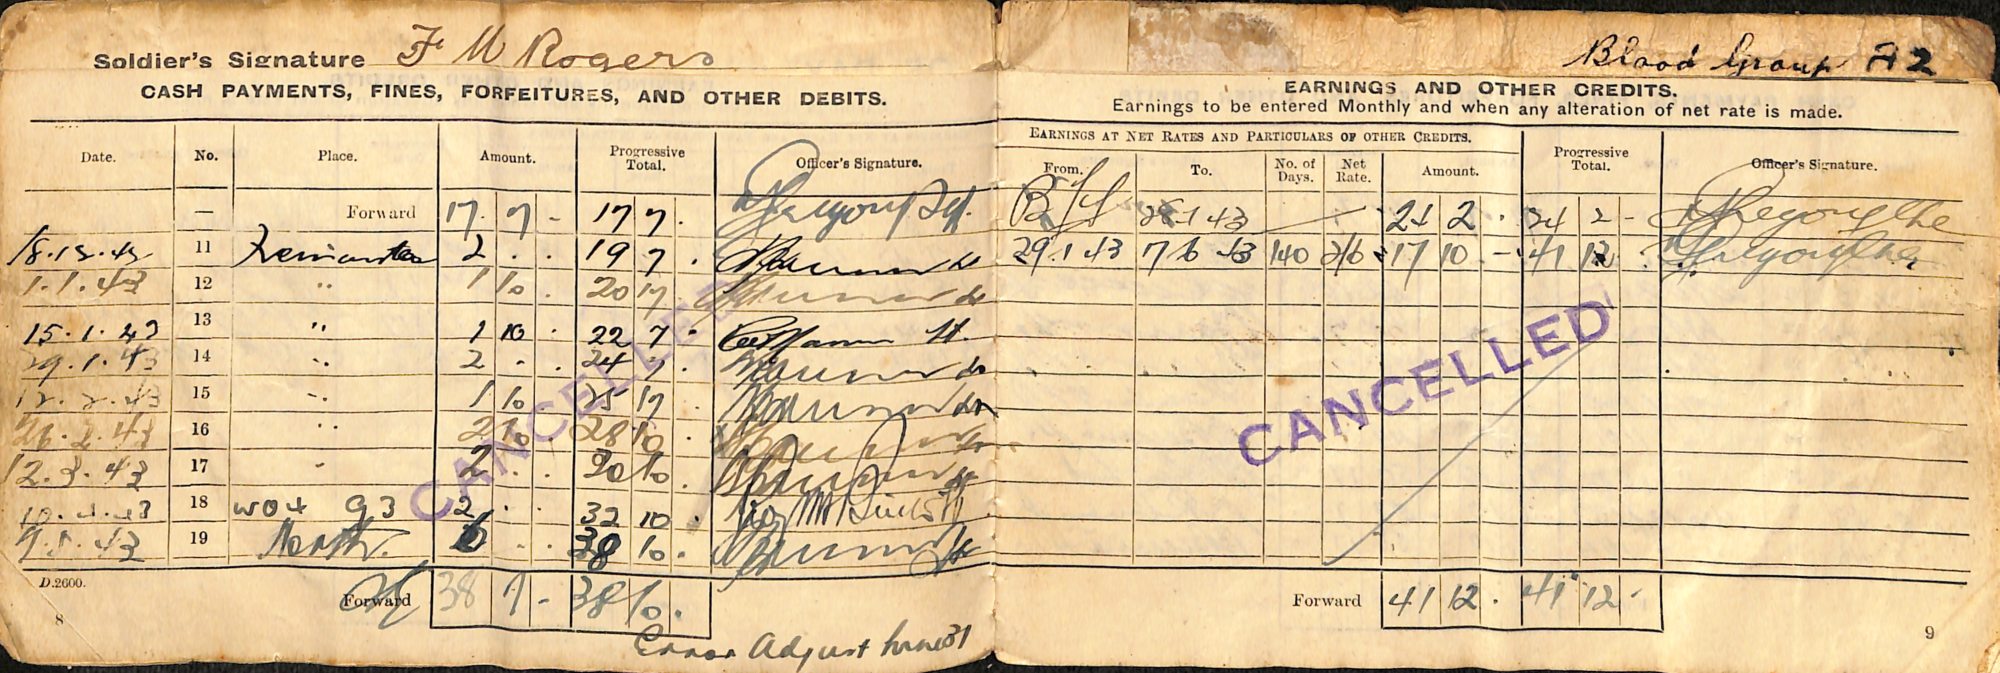 Soldier's Signature F M Rogers
CASH PAYMENTS, FINES, FORFEITURES, AND OTHER DEBITS.
Date. No. Place. Amount. Progressive Total. Officer's Signature.
— Forward 17 . 7 - 17 7 .
11 2 . . 19 7 .
1.1.43 12 " 1 10 . 20 17 .
15.1.43 13 " 1 10 . 22 7 .
29.1.43 14 " 2 . . 24 7 .
12.2.43 15 " 1 10 . 25 17 .
26.2.43 16 " 2 10 . 28 10 .
12.3.43 17 " 2 . . 30 10 .
18 2 . . 32 10 .
19 North. 6 . . 38 10 .
D.2600.
Forward 38 7 - 38 10 .
Error Adjust
8
CANCELLED
Blood Group A2
EARNINGS AND OTHER CREDITS.
Earnings to be entered Monthly and when any alteration of net rate is made.
EARNINGS AT NET RATES AND PARTICULARS OF OTHER CREDITS.
From. To. No. of Days. Net Rate. Amount. Progressive Total. Officer's Signature.
28 1 43 24 2 . 24 2 -
29 1 43 7 6 43 140 2/6 17 10 - 41 12 .
CANCELLED
Forward 41 12 . 41 12 -
9